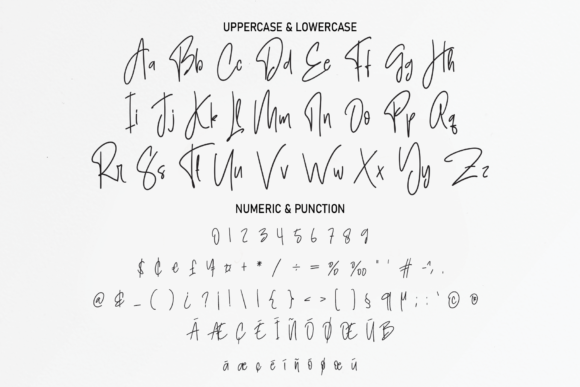 UPPERCASE & LOWERCASE
Aa Bb Cc Dd Ee Ff Gg Hh
Ii Jj Kk Ll Mm Nn Oo Pp Qq
Rr Ss Tt Uu Vv Ww Xx Yy Zz
NUMERIC & PUNCTION
0 1 2 3 4 5 6 7 8 9
$ ¢ € £ ¥ ¤ + * / ÷ = % ‰ " ' # - ~ , .
@ & _ ( ) ¿ ? ¡ ! \ | { } < > [ ] § ¶ µ ; : ` © ®
Ä Æ Ç É Í Ñ Ó Ø Œ Ü ß
ä æ ç é í ñ ó ø œ ü